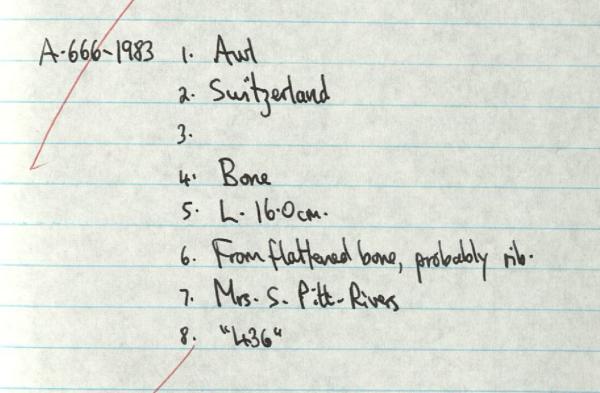 A-666-1983 1. Awl
2. Switzerland
3.
4. Bone
5. L. 16.0cm.
6. From flattened bone, probably rib.
7. Mrs. S. Pitt-Rivers
8. "436"